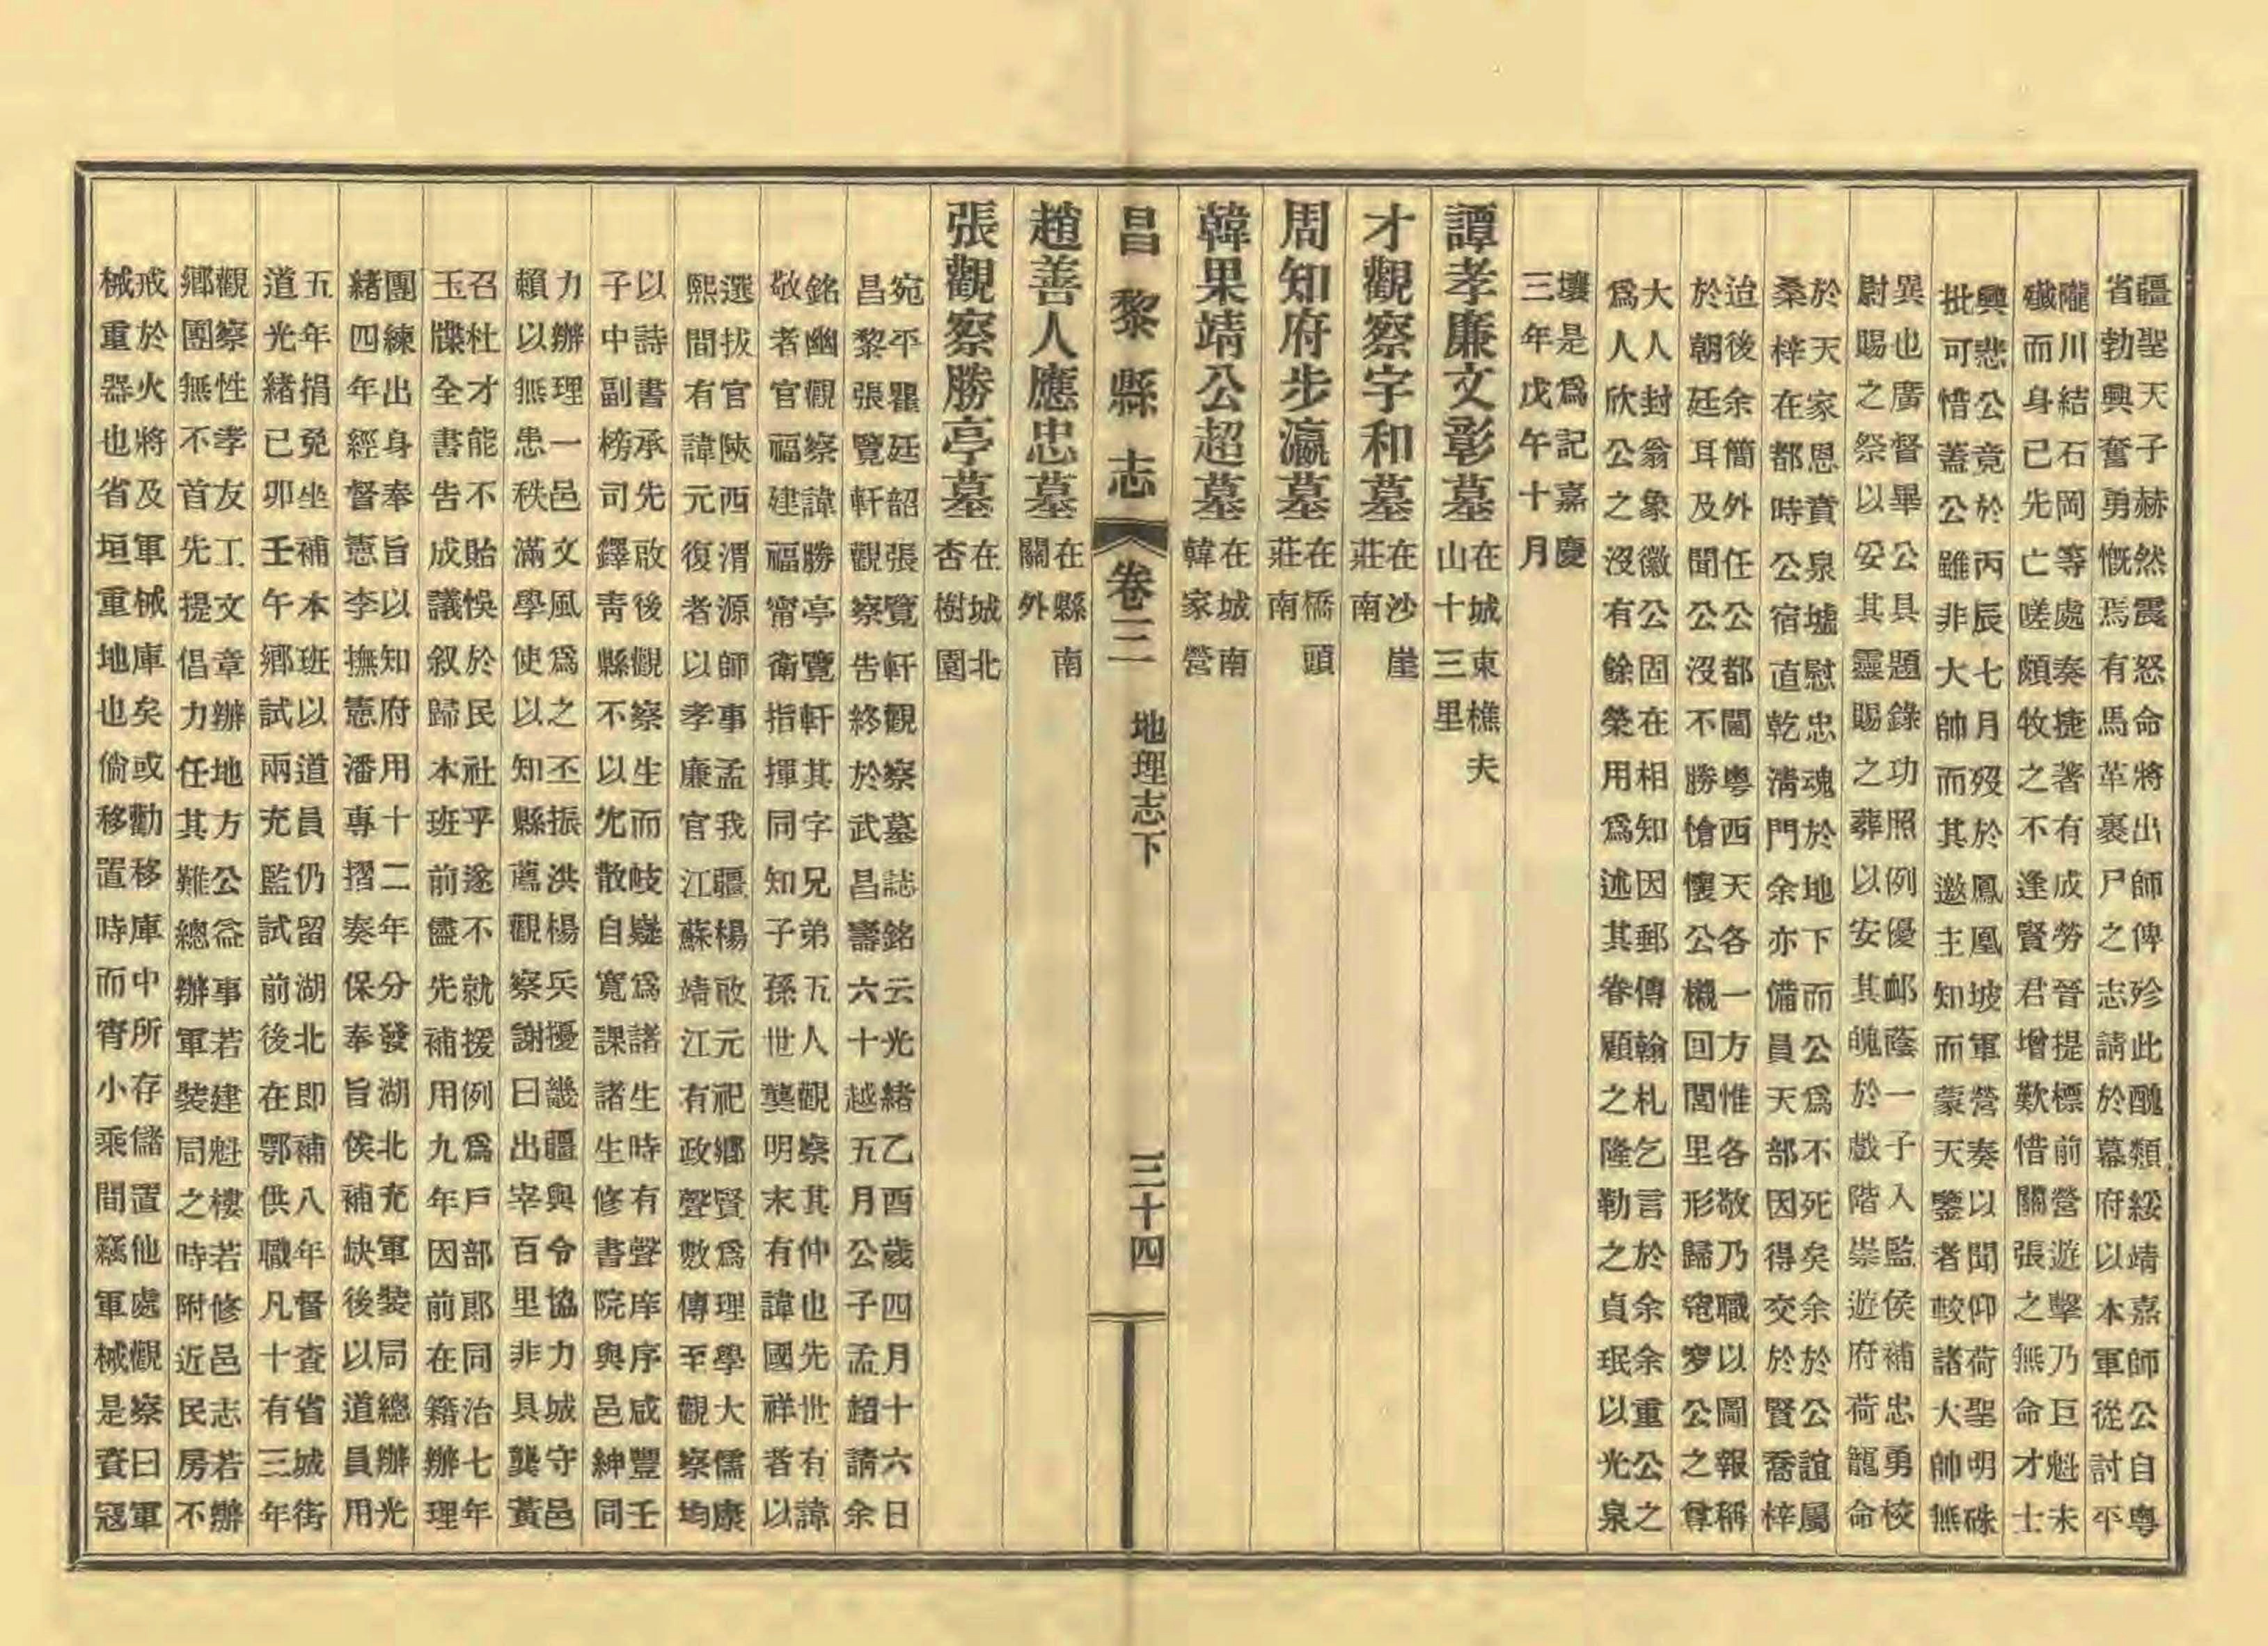 疆聖天子赫然震怒命將出師俾殄此醜類綏靖嘉師公自粵
省勃興奮勇慨焉有馬革裹尸之志請於幕府以本軍從討平
隴川結石岡等處奏捷著有成勞晉提標前營遊擊乃巨魁未
殲而身已先亡嗟頗牧之不逢賢君增歎惜關張之無命才士
興悲公竟於丙辰七月歿於鳳凰坡軍營奏以聞仰荷聖明硃
批可惜蓋公雖非大帥而其邀主知而蒙天鑒者較諸大帥無
異也廣督畢公具題錄功照例優卹蔭一子入監侯補忠勇校
尉賜之祭以安其靈賜之葬以安其魄於戲階崇遊府荷龍命
於天家恩賁泉墟慰忠魂於地下而公爲不死矣余於公誼屬
桑梓在都時公宿直乾淸門余亦備員天部因得交於賢喬梓
迨後余簡外任公都閫粵西天各一方惟各敬乃職以圖報稱
於朝廷耳及聞公沒不勝愴懷公櫬回閭里形歸窀穸公之尊
大人封翁象徽公固在相知因郵傳翰札乞言於余余重公之
爲人欣公之沒有餘榮用爲述其眷顧之隆勒之貞珉以光泉
壤是爲記嘉慶
三年戊午十月
譚孝廉文彰墓在城東樵夫
山十三里
才觀察字和墓在沙崖
莊南
周知府步瀛墓在橋頭
莊南
韓果靖公超墓在城南
韓家營
昌黎縣志 卷三 地理志下 三十四
趙善人應忠墓在縣南
關外
張觀察勝亭墓在城北
杏樹園
宛平瞿廷韶張覽軒觀察墓誌銘云光緒乙酉歲四月十六日
昌黎張覽軒觀察告終於武昌壽六十越五月公子孟超請余
銘幽觀察諱勝亭覽軒其字兄弟五人觀察其仲也先世有諱
敬者官福建福甯衛指揮同知子孫世襲明末有諱國祥者以
選拔官陝西渭源師事孟我疆楊啟元祀鄉賢爲理學大儒康
熙間有諱元復者以孝廉官江蘇靖江有政聲數傳至觀察均
以詩書承先啟後觀察生而岐嶷爲諸生時有聲庠序咸豐壬
子中副榜司鐸靑縣不以冗散自寬課諸生修書院與邑紳同
力辦理一邑文風爲之丕振洪楊兵擾畿疆與令協力城守邑
賴以無患秩滿學使以知縣薦觀察謝曰出宰百里非具龔黃
召杜才能不貽悞於民社乎遂不就援例爲戶部郎同治七年
玉牒全書告成議叙歸本班前儘先補用九年因前在籍辦理
團練出身奉旨以知府用十二年分發湖北充軍裝局總辦光
緒四年經督憲李撫憲潘專摺奏保奉旨侯補缺後以道員用
五年捐免坐補本班以道員仍留湖北即補八年督查省城街
道光緒已卯壬午鄉試兩充監試前後在鄂供職凡十有三年
觀察性孝友工文章辦地方公益事若建魁樓若修邑志若辦
鄉團無不首先提倡力任其難總辦軍裝局之時附近民房不
戒於火將及軍械庫矣或勸移庫中所存儲置他處觀察曰軍
械重器也省垣重地也倘移置時而宵小乘間竊軍械是賫寇